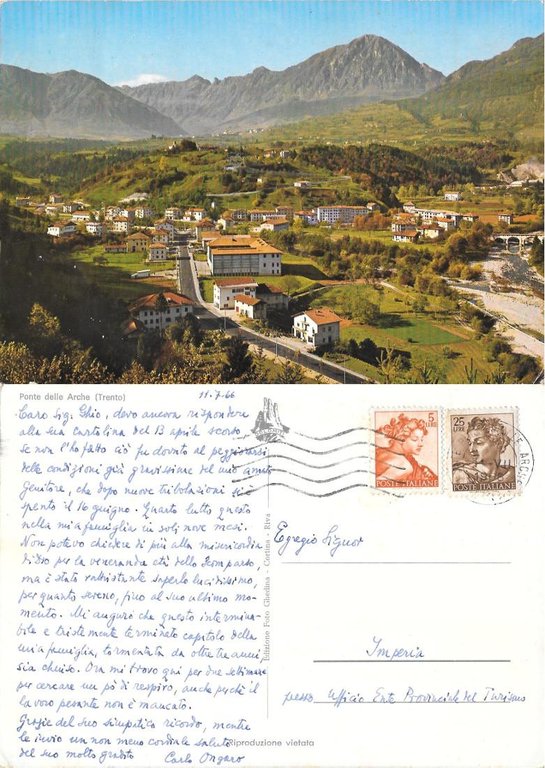 Ponte delle Arche (Trento)
11.7.66
Caro Sig. Ghio, devo ancora rispondere
alla sua cartolina del 13 aprile scorso
se non l'ho fatto ciò fu dovuto al peggiorarsi
delle condizioni già gravissime del mio amato
genitore, che dopo nuove tribolazioni si è
spento il 16 giugno. Quarto lutto questo
nella mia famiglia in soli nove mesi.
Non potevo chiedere di più alla misericordia
di Dio per la veneranda età dello scomparso,
ma è stato rattristante saperlo lucidissimo,
per quanto sereno, fino al suo ultimo mo-
mento. Mi auguro che questo intermina-
bile e tristemente terminato capitolo della
mia famiglia, tormentata da oltre tre anni
sia chiuso. Ora mi trovo qui per due settimane
per cercare un pò di respiro, anche perché il
lavoro pesante non è mancato.
Grazie del suo simpatico ricordo, mentre
le invio un non meno cordiale saluto
del suo molto grato
Carlo Ongaro
Edizione Foto Ghedina - Cortina - Riva
5 LIRE
POSTE ITALIANE
25 LIRE
POSTE ITALIANE
ARCHE
Egregio Signor
Imperia
presso Ufficio Ente Provinciale del Turismo
Riproduzione vietata